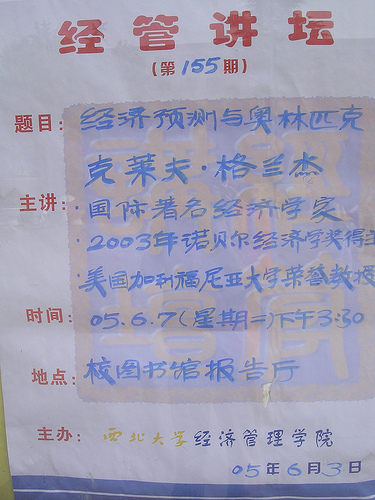 经管讲坛
(第155期)
题目：经济预测与奥林匹克
克莱夫·格兰杰
主讲：·国际著名经济学家
·2003年诺贝尔经济学奖得主
·美国加利福尼亚大学荣誉教授
时间：05.6.7(星期二)下午3:30
地点：校图书馆报告厅
主办：西北大学经济管理学院
05年6月3日